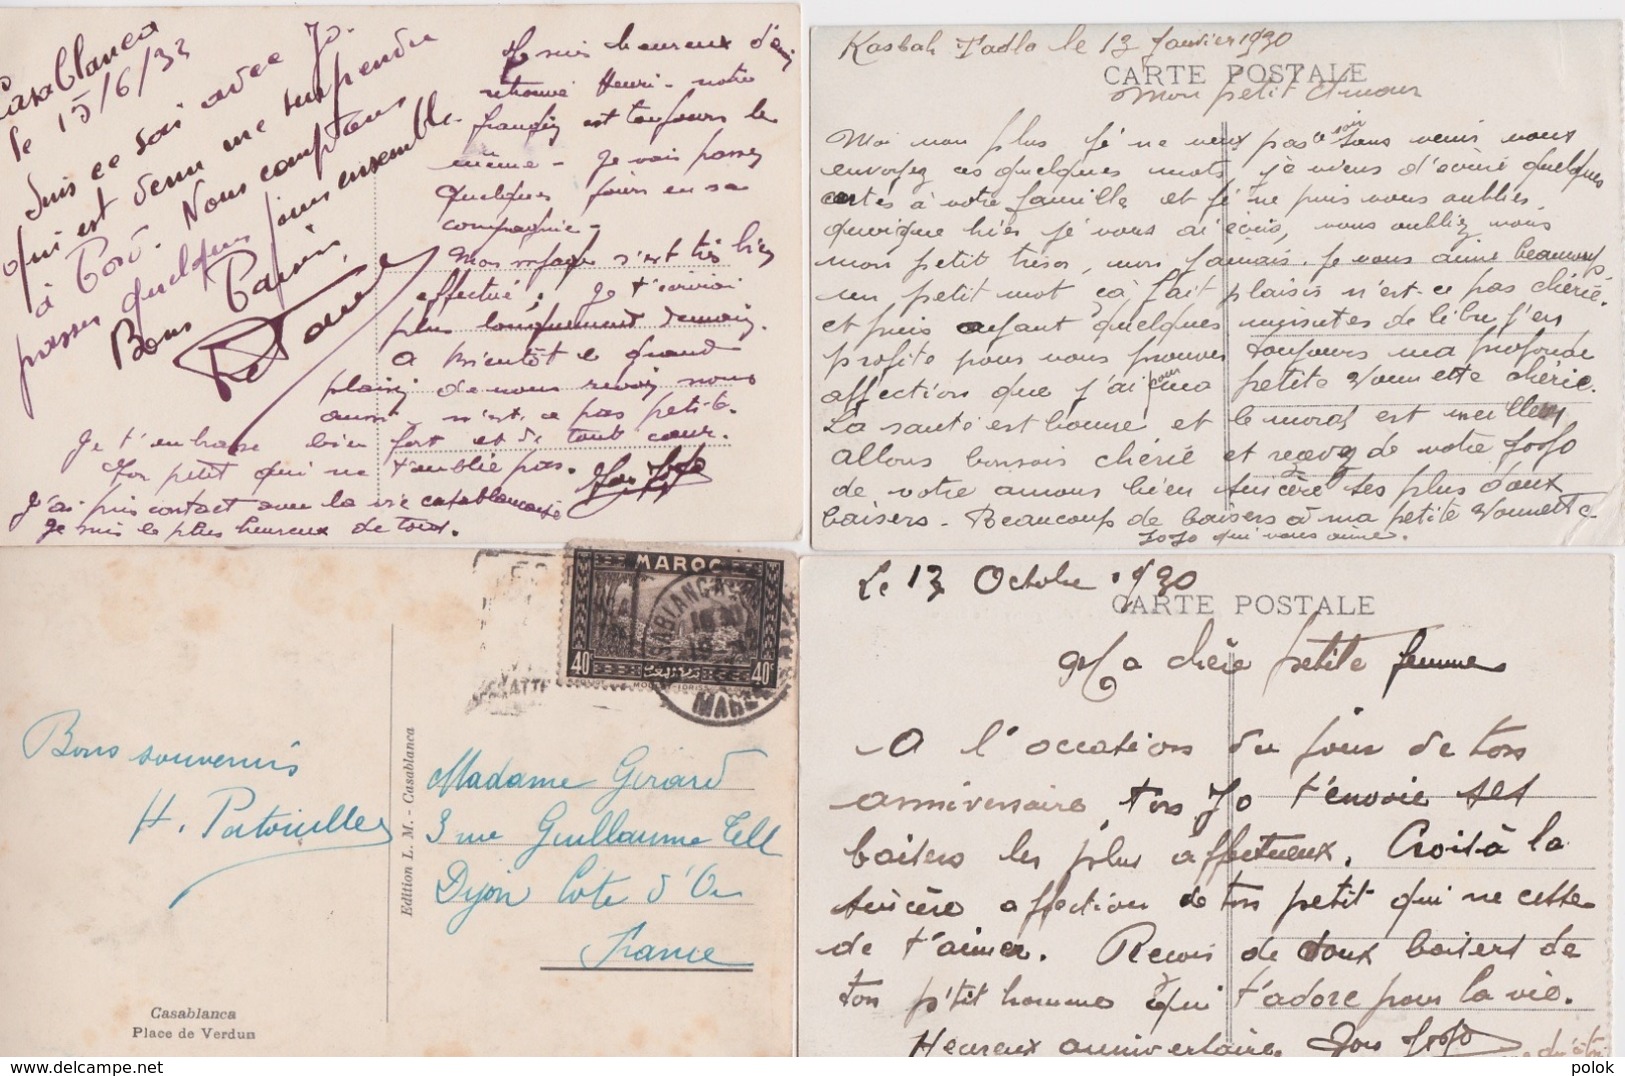 Casablanca
le 15/6/33
Suis ce soir avec Jo.
qui est venu me surprendre
à Bord. Nous comptons
passer quelques jours ensemble.
Bons Baisers
Je suis heureux d'avoir
retrouvé Henri - notre
est toujours la
même - Je vais passer
quelques jours en sa
compagnie -
Mon voyage s'est très bien
effectué ; Je t'écrirai
plus longuement demain.
A bientôt le grand
plaisir de nous revoir nous
aussi n'est-ce pas petite.
Je t'embrasse bien fort et de tout cœur.
Ton petit qui ne t'oublie pas. Ton Jojo
J'ai pris contact avec la vie casablancaise
Je suis le plus heureux de tous.
Kasbah Tadla le 13 Janvier 1930
CARTE POSTALE
Mon petit Amour
Moi non plus je ne veux pas ce soir sans venir vous
envoyez ces quelques mots, je viens d'écrire quelques
cartes à votre famille et je ne puis vous oublier
quoique hier je vous ai écris, vous oubliez vous
mon petit trésor, non jamais. Je vous aime beaucoup
un petit mot çà fait plaisir n'est-ce pas chérie.
et puis ayant quelques minutes de libre j'en
profite pour vous prouver toujours ma profonde
affection que j'ai pour ma petite Vonnette chérie.
La santé est bonne et le moral est meilleur
allons bonsoir chérie et recevez de votre JoJo
de votre amour bien sincère ses plus doux
baisers - Beaucoup de baisers à ma petite Vonnette
JoJo qui vous aime.
MAROC
40c 40c
CASABLANCA
MAROC
Bons souvenirs
H. Patouillex
Edition L. M. - Casablanca
Madame Girard
3 rue Guillaume Tell
Dijon Cote d'Or
France
Casablanca
Place de Verdun
Le 13 Octobre 1930
CARTE POSTALE
Ma chère petite femme
A l'occation du jour de ton
anniversaire, ton Jo t'envoie ses
baisers les plus affectueux. Crois à la
sincère affection de ton petit qui ne cesse
de t'aimer. Recois de doux baisers de
ton p'tit homme qui t'adore pour la vie.
Heureux anniversaire. Ton JoJo
polok